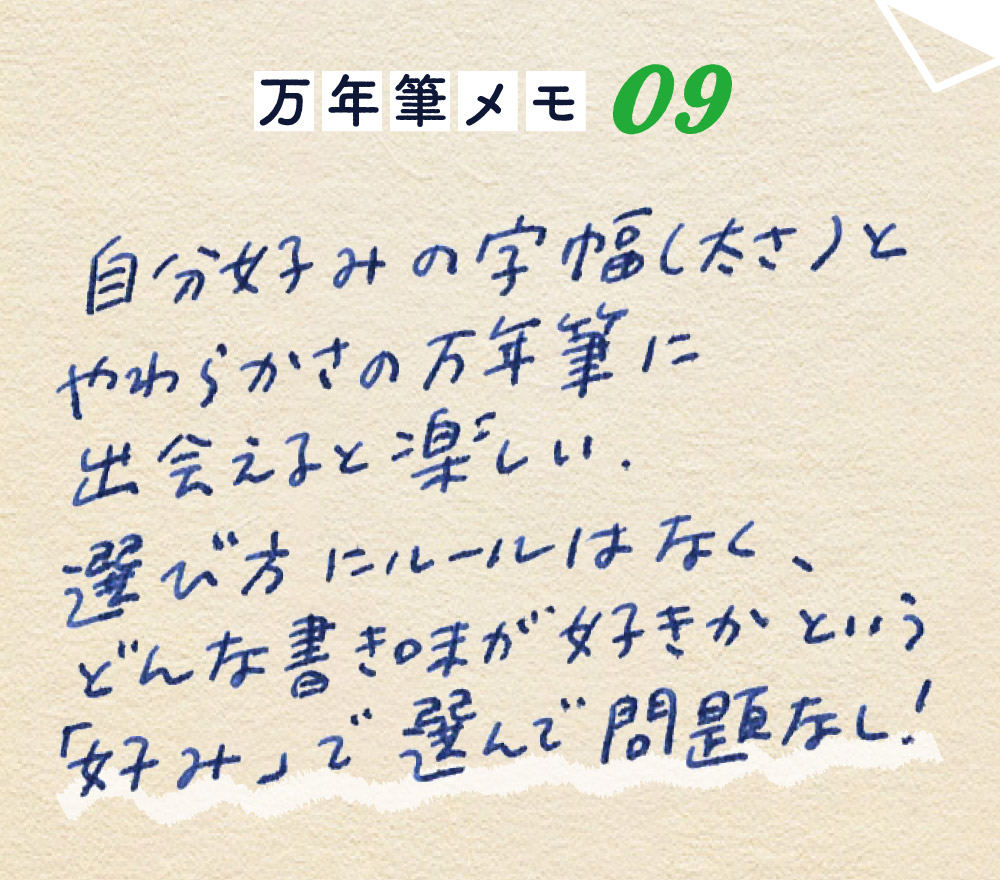 万年筆メモ 09
自分好みの字幅(太さ)と
やわらかさの万年筆に
出会えると楽しい.
選び方にルールはなく、
どんな書き味が好きかという
「好み」で選んで問題なし!